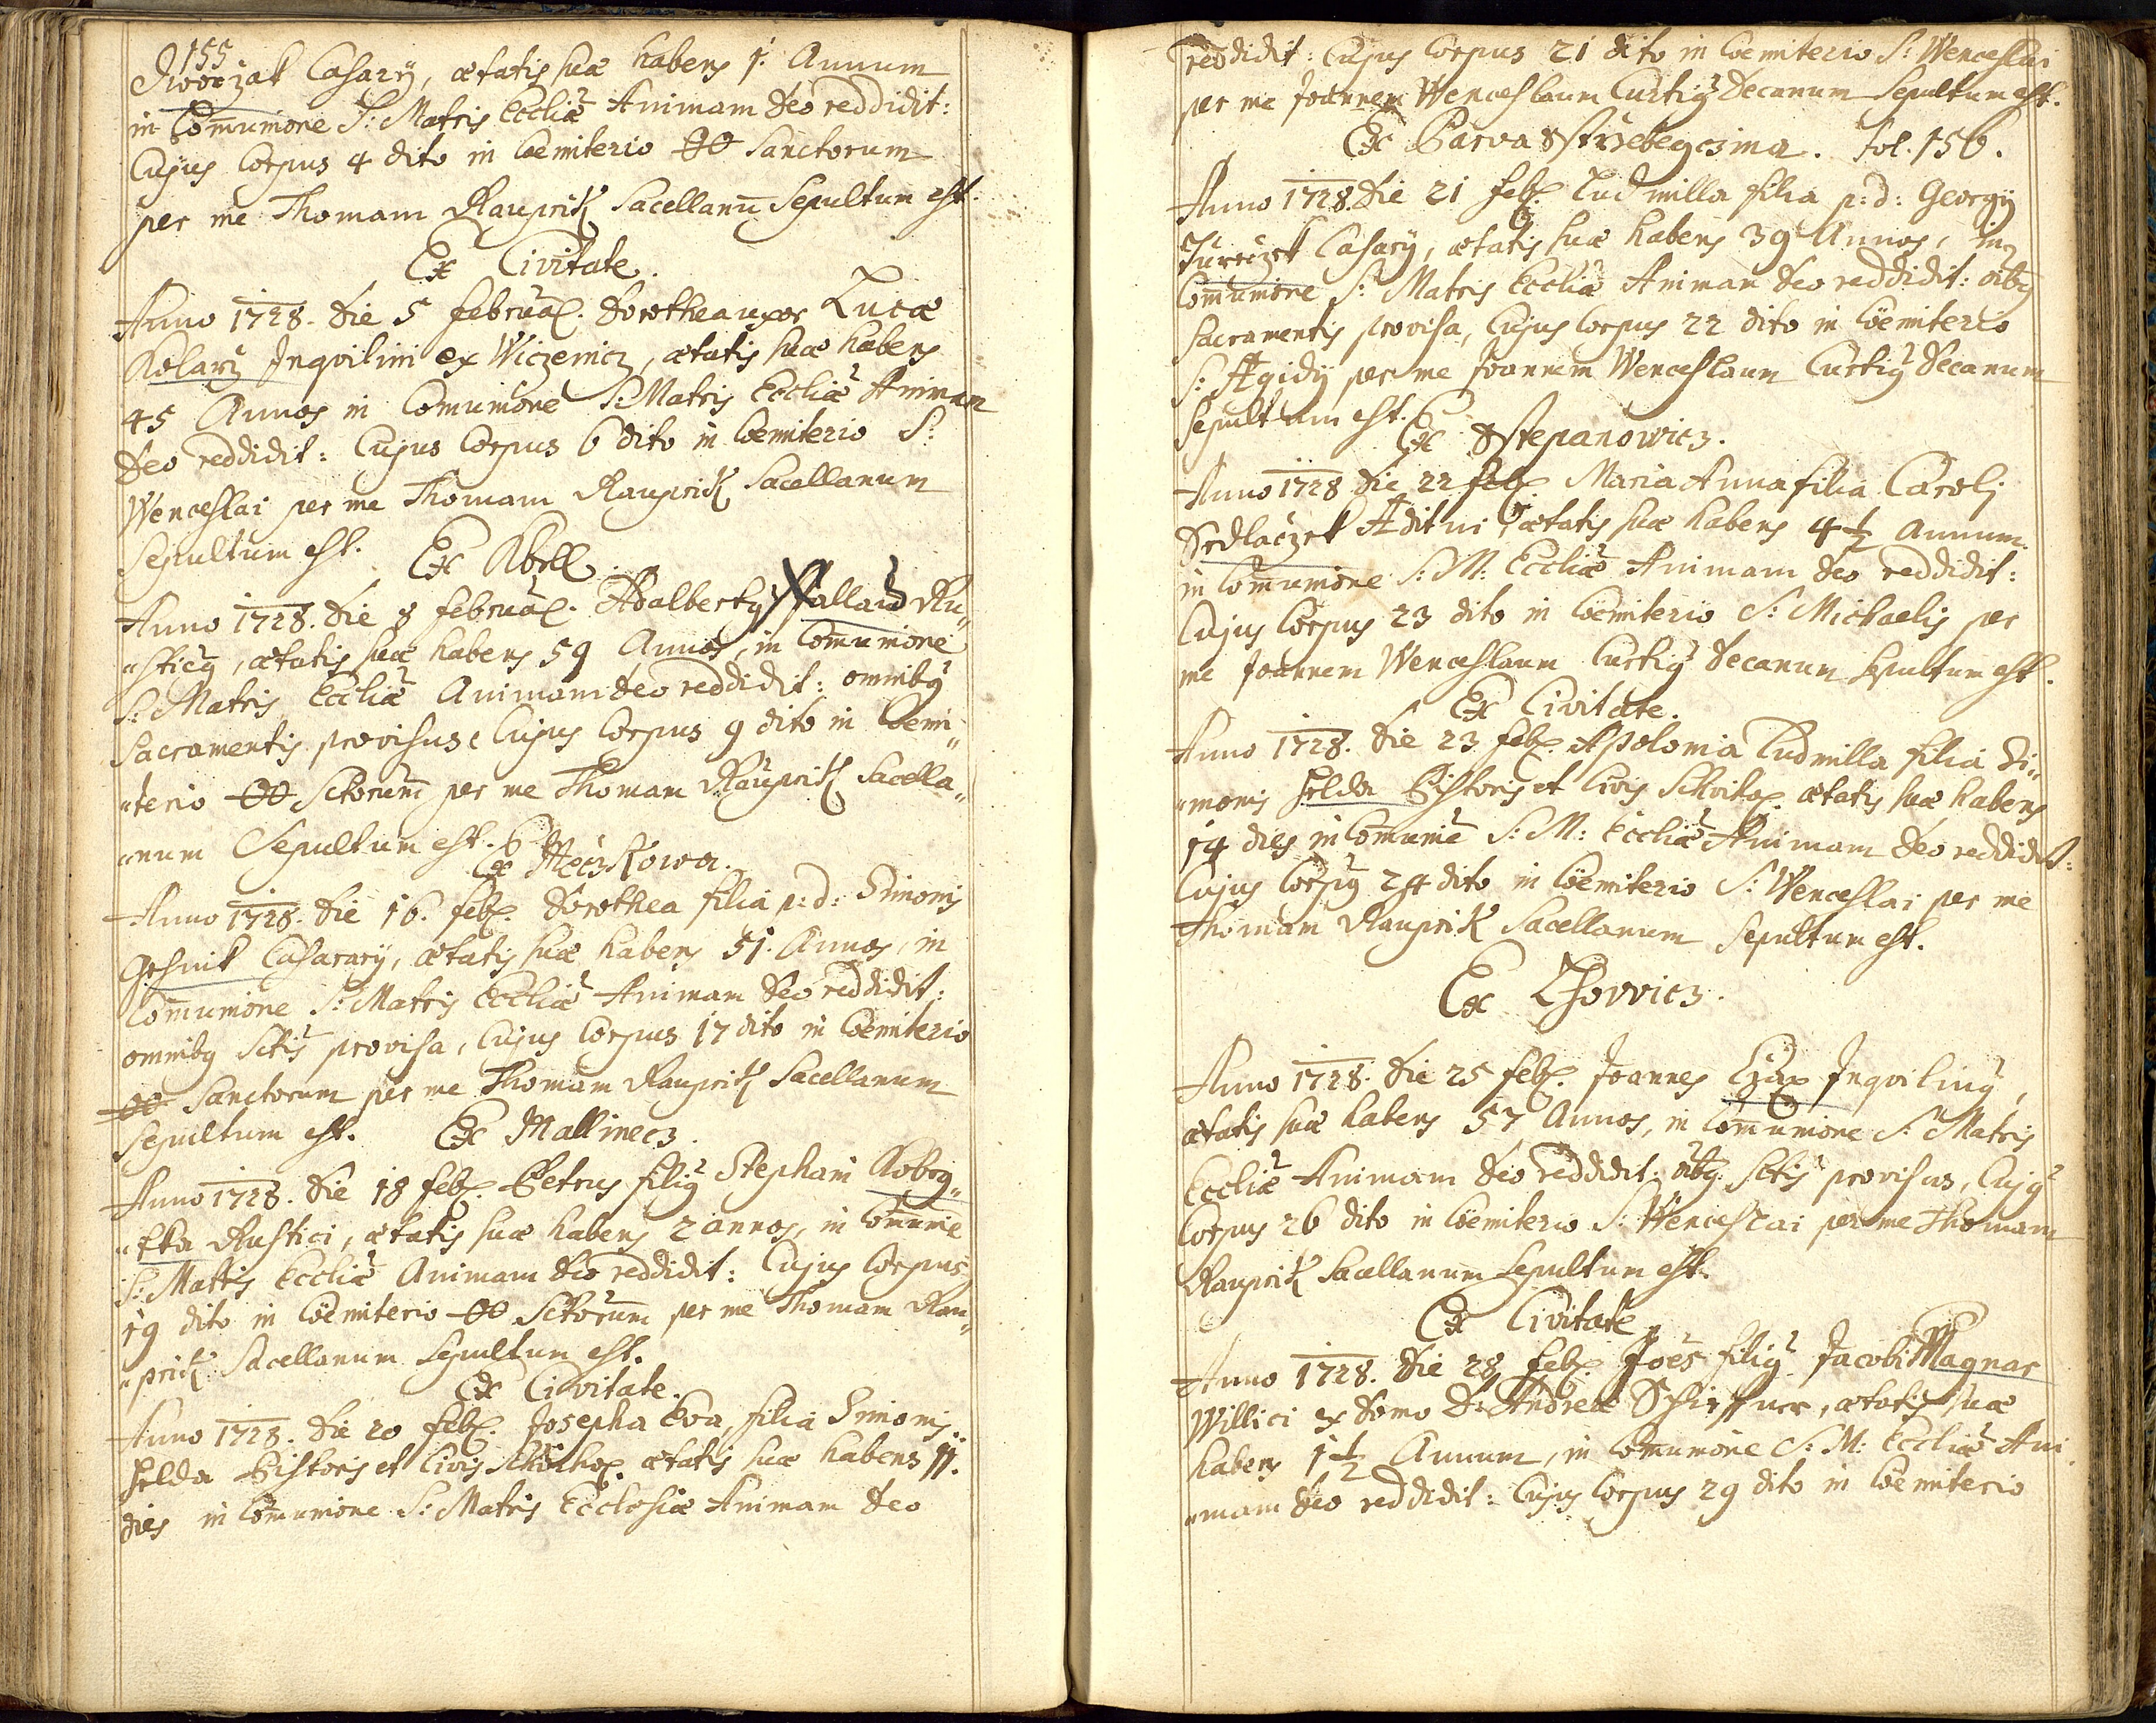 155
Dworzak Casarÿ, ætatis suæ habens 1. Annum
in Com̄unione S: Matris Eccliæ Animam Deo reddidit:
Cujus Corpus 4 dito in Coemiterio OO Sanctorum
per me Thomam Raupr̄ik Sacellanū Sepultum est.
Ex Civitate.
Anno 1728. die 5 februar. Dorothea uxor Lucæ
Kolarz Inqvilini ex Wiczenicz, ætatis suæ habens
45 Annos in Com̄unione S: Matris Eccliæ Animam
Deo reddidit: Cujus Corpus 6 dito in Coemiterio S:
Wenceslai per me Thomam Rauprik Sacellanum
Sepultum est.
Ex Kbell.
Anno 1728. die 8 februar. Adalbertus Wallard Ru„
„sticus, ætatis suæ habens 59 Annos, in Com̄unione
S: Matris Eccliæ Animam Deo reddidit: omnibus
Sacramentis provisus, Cujus Corpus 9 dito in Coemi„
„terio OO Sctorum per me Thomam Rauprik Sacella„
„num Sepultum est.
Ex Meczkowa.
Anno 1728. die 16. feb. Dorothea filia p: d: Simonis
Gesnik Casarary, ætatis suæ habens 51. Annos, in
Com̄unione S: Matris Eccliæ Animam Deo reddidit:
omnibus Sctis provisa, Cujus Corpus 17 dito in Coemiterio
OO Sanctorum per me Thomam Rauprik Sacellanum
Sepultum est. Ex Mallinecz.
Anno 1728. die 18 feb. Petrus filius Stephani Kobrg„
„tka Rustici, ætatis suæ habens 2 annos, in Com̄unie
S: Matris Eccliæ Animam Deo reddidit: Cujus Corpus
19 dito in Coemiterio OO Sctorum per me Thomam Rau„
„prik Sacellanum Sepultum est.
Ex Civitate.
Anno 1728. die 20 feb. Josepha Eva, filia Simonis
Helda Pistoris et Civis ætatis suæ habens 11.
dies in Com̄unione S: Matris Ecclesiæ Animam Deo
reddidit: Cujus Corpus 21 dito in Coemiterio S: Wenceslai
per me Joannem Wenceslaum Curtius Decanum Sepultum est.
Ex Parva Strzebeyczina. fol. 156.
Anno 1728. die 21 feb. Ludmilla filia p: d: Georgÿ
Jureczek Casarÿ, ætatis suæ habens 39 Annos, in
Com̄unione S: Matris Eccliæ Animam Deo reddidit: oībus
Sacramentis provisa, Cujus Corpus 22 dito in Coemiterio
S: Ægidÿ per me Joannem Wenceslaum Curtius Decanum
Sepultum est.
Ex Sstepanowicz.
Anno 1728 die 22 feb. Maria Anna filia Caroli
Sedlaczek Æditui, ætatis suæ habens 4 1/2 Annum.
in Com̄unione S: M: Eccliæ Animam Deo reddidit:
Cujus Corpus 23 dito in Coemiterio S: Michaelis per
me Joannem Wenceslaum Curtius Decanum Sepultum est.
Ex Civitate.
Anno 1728. die 23 feb. Apolonia Ludmilla filia Si„
„monis Helda Pistoris et Civis ætatis suæ habens
14 dies in Com̄unie S: M: Eccliæ Animam Deo reddidit:
Cujus Corpus 24 dito in Coemiterio S: Wenceslai per me
Thomam Rauprik Sacellanum Sepultum est.
Ex Lhovvicz.
Anno 1728. die 25 feb. Joannes Czap Inqvilinus,
ætatis suæ habens 57 Annos, in Com̄unione S: Matris
Eccliæ Animam Deo reddidit: oībus Sctis provisus, Cujus
Corpus 26 dito in Coemiterio S: Wenceslai per me Thomam
Rauprik Sacellanum Sepultum est.
Ex Civitate
Anno 1728. die 28 feb. Joēs filius Jacobi Wagnar
Willici ex Domo D: Andreæ Schiffner, ætatis suæ
habens 1 1/2 Annum, in Com̄unione S: M: Eccliæ Ani
„mam Deo reddidit: Cujus Corpus 29 dito in Coemiterio